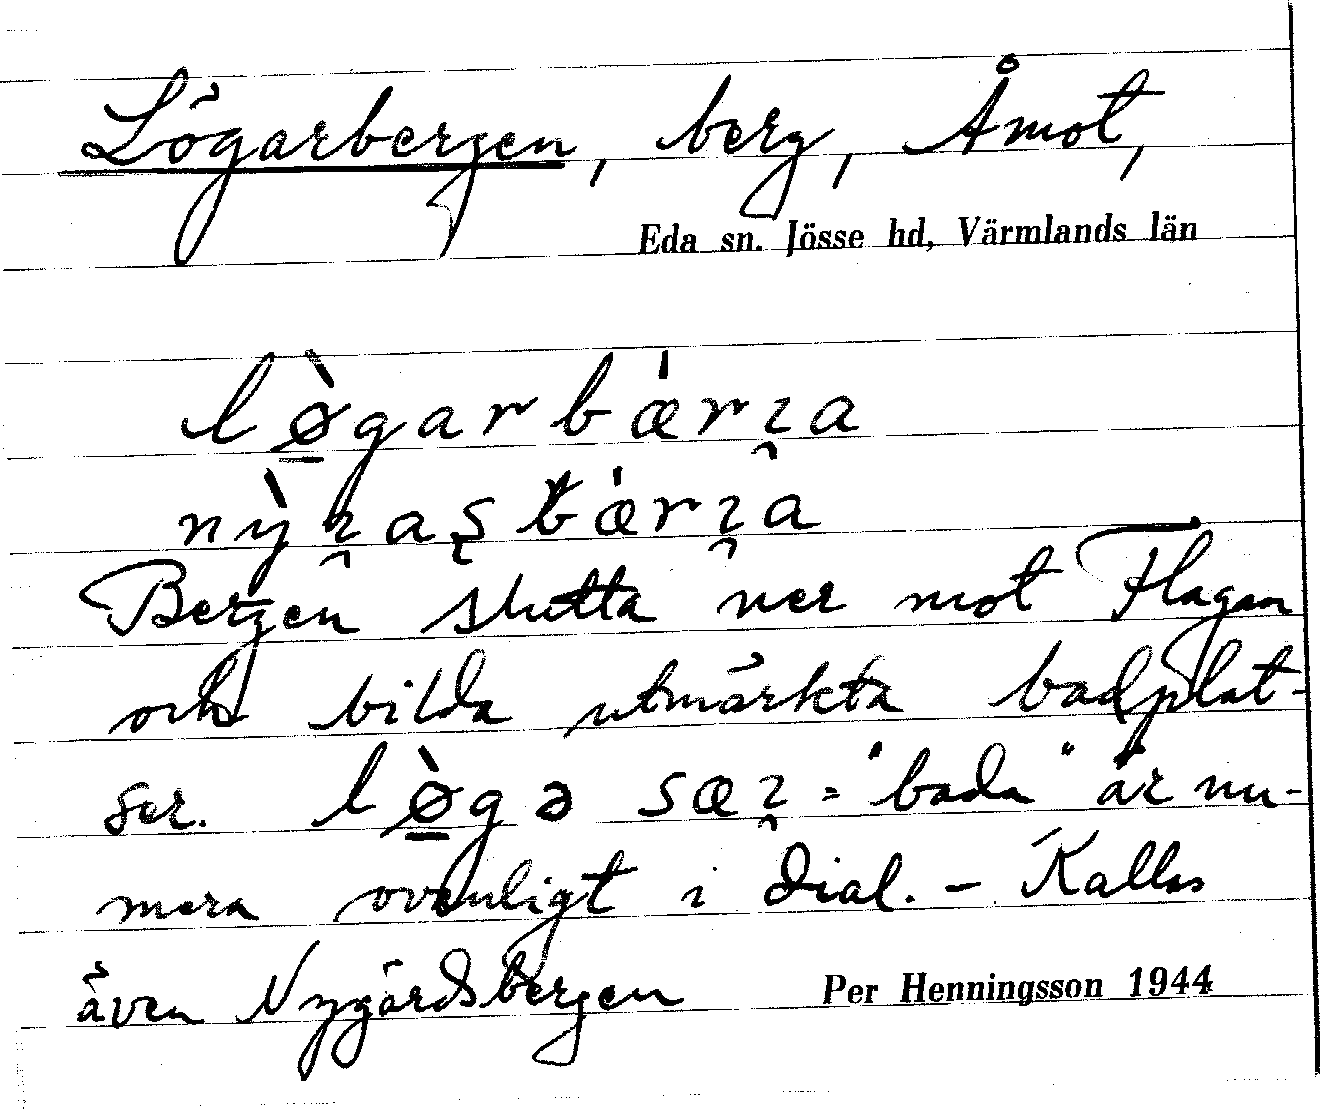 Lögarbergen, berg, Åmot,
Eda sn. Jösse hd, Värmlands län
lø̱̀garbæ̍rɿ̯a
nỳɿ̯aʂbæ̍rɿ̯a
Bergen slutta ner mot Flagan
och bilda utmärkta badplat-
ser. lø̱̀gə sæɿ̯ = "bada" är nu-
mera ovanligt i dial. – Kallas
även Nygårdsbergen Per Henningsson 1944